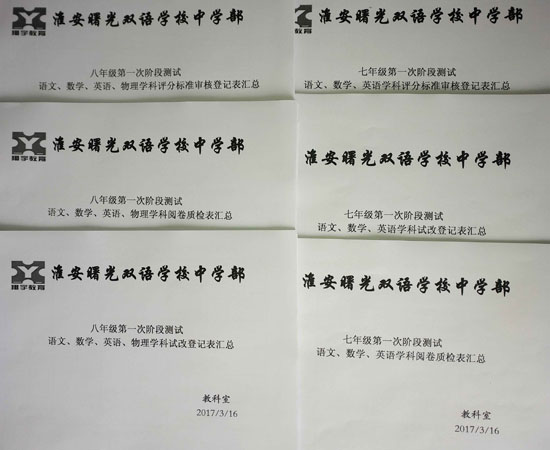 翔宇教育
淮安曙光双语学校中学部
八年级第一次阶段测试
语文、数学、英语、物理学科评分标准审核登记表汇总
淮安曙光双语学校中学部
七年级第一次阶段测试
语文、数学、英语学科评分标准审核登记表汇总
翔宇教育
淮安曙光双语学校中学部
八年级第一次阶段测试
语文、数学、英语、物理学科阅卷质检表汇总
淮安曙光双语学校中学部
七年级第一次阶段测试
语文、数学、英语学科试改登记表汇总
翔宇教育
淮安曙光双语学校中学部
八年级第一次阶段测试
语文、数学、英语、物理学科试改登记表汇总
教科室
2017/3/16
淮安曙光双语学校中学部
七年级第一次阶段测试
语文、数学、英语学科阅卷质检表汇总
教科室
2017/3/16